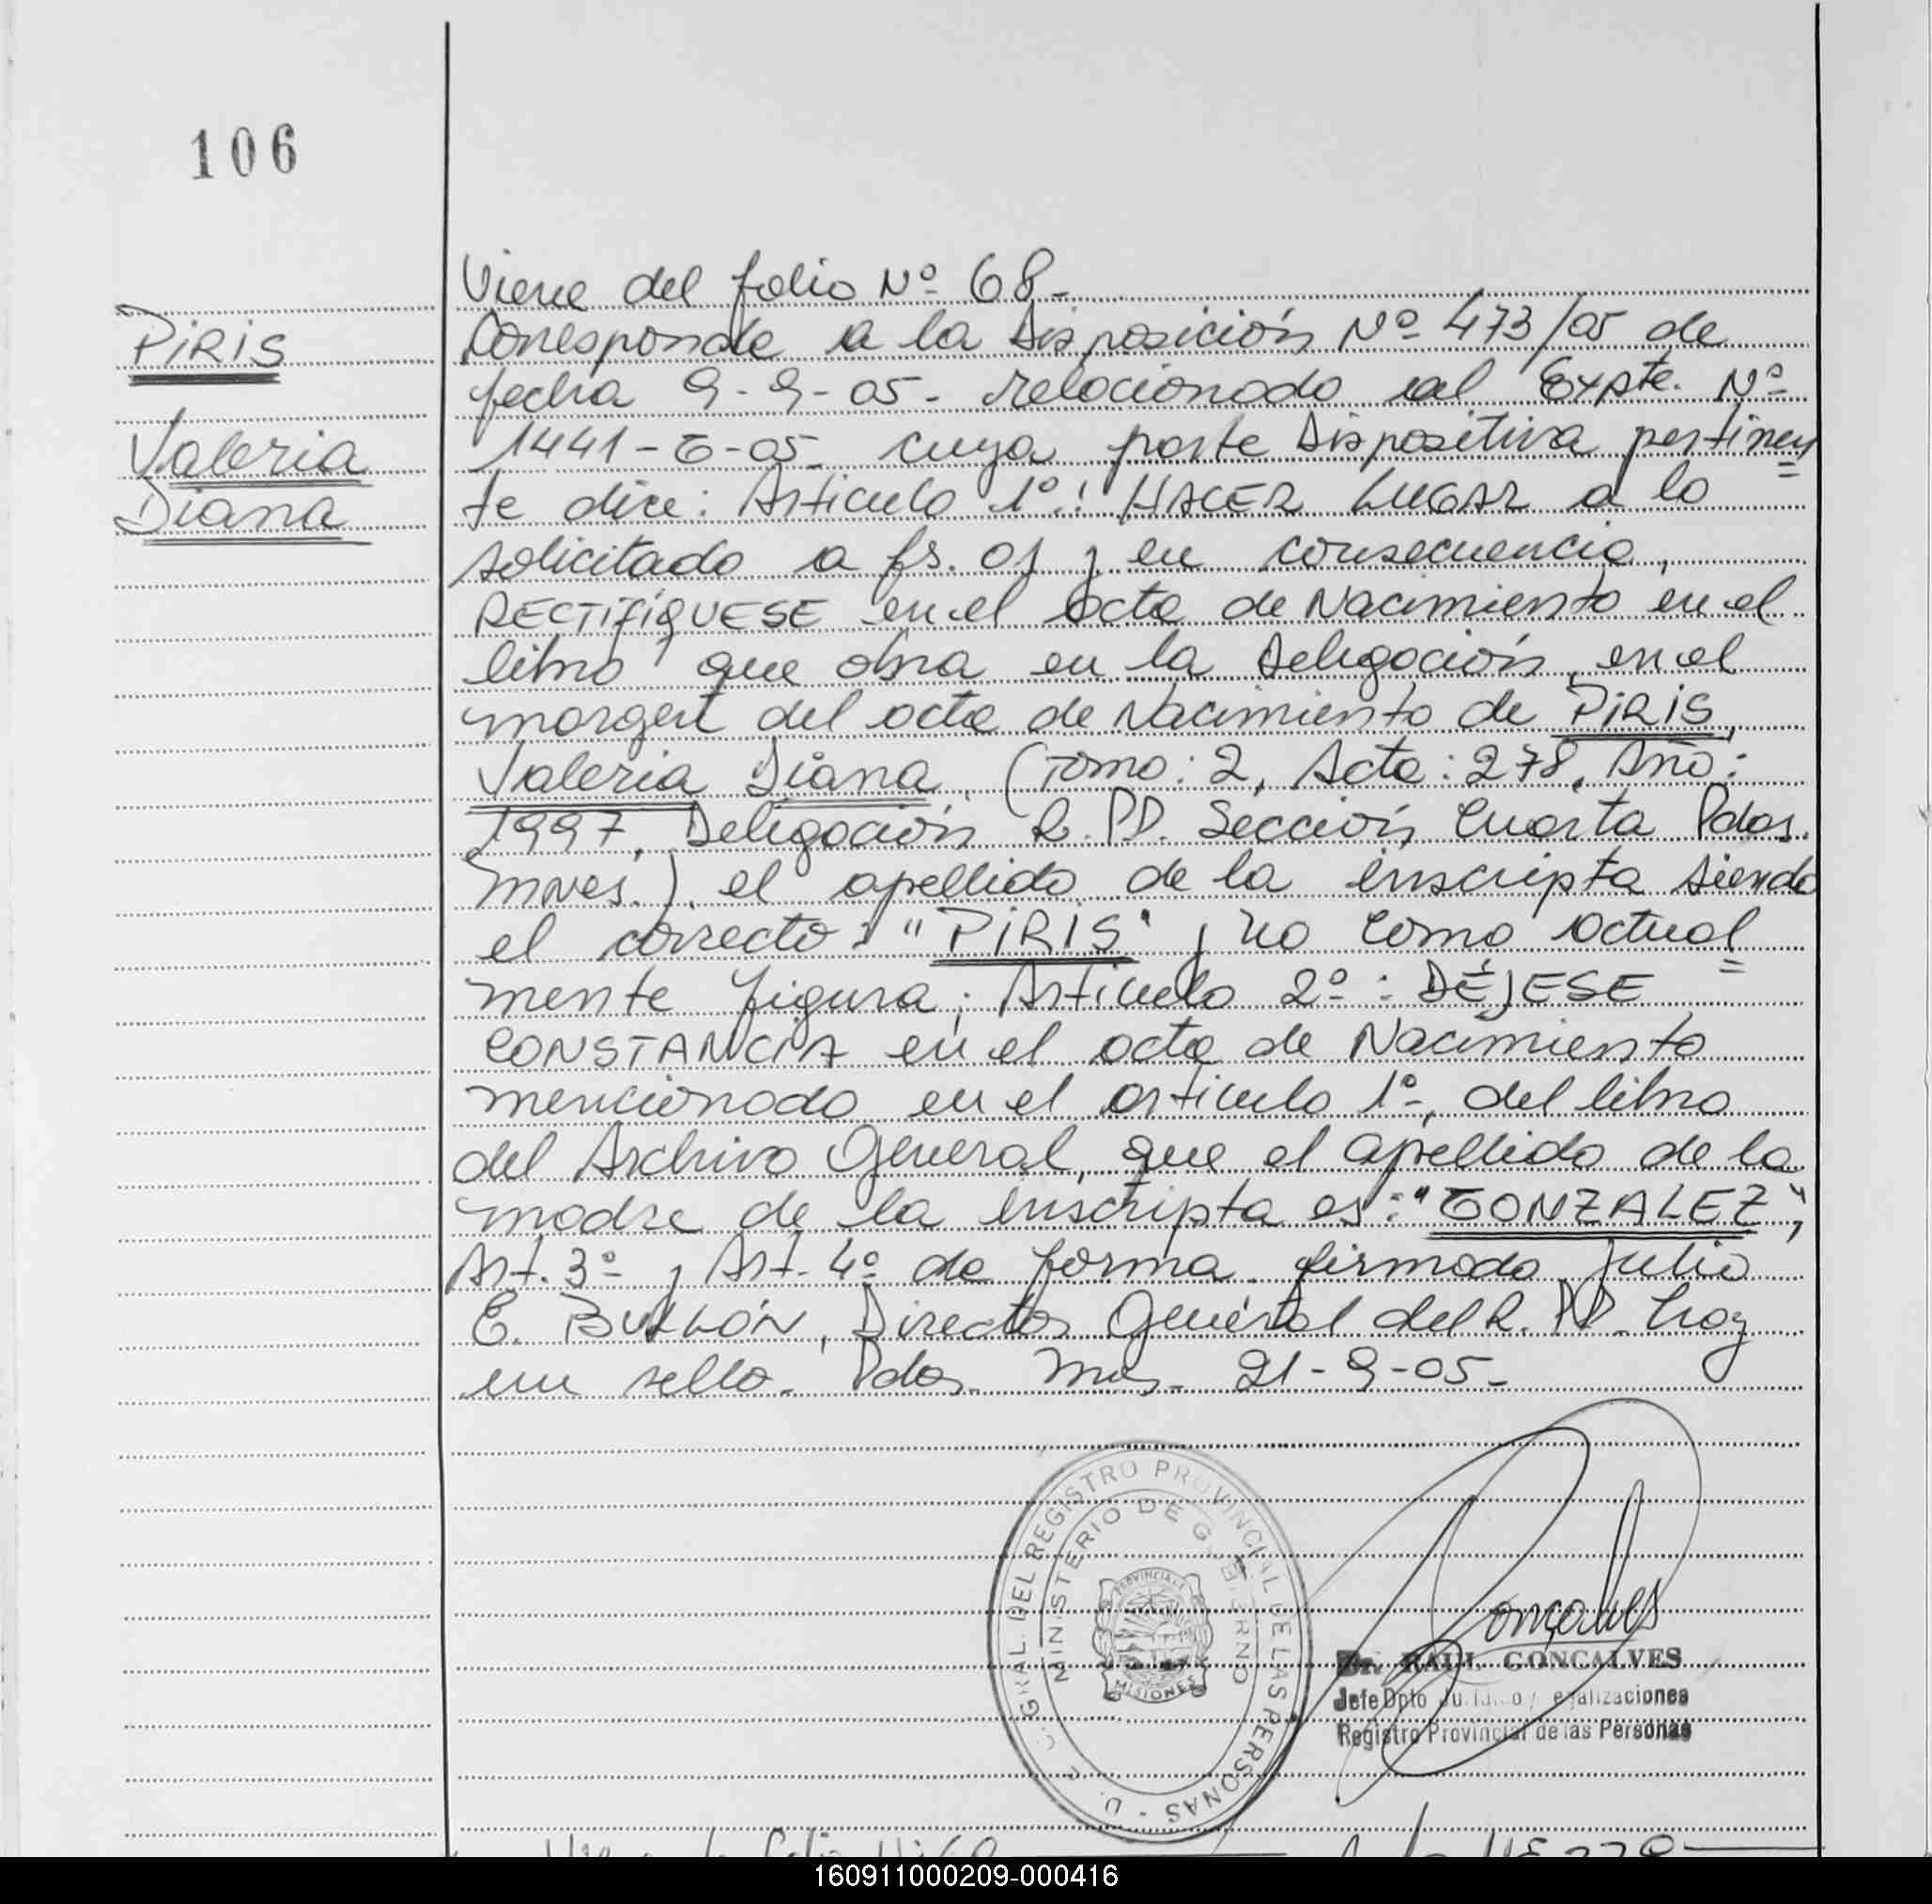 106
PIRIS
Valeria
Diana
Viene del folio Nº 68-
Corresponde a la Disposición Nº 473/05 de
fecha 9-9-05- relacionado al Expte. Nº
1441-G-05- cuya parte Dispositiva pertinen=
te dice: Artículo 1º: HACER LUGAR a lo
solicitado a fs. 01 y en consecuencia,
RECTIFÍQUESE en el acta de Nacimiento en el
libro que obra en la Delegación, en el
margen del acta de Nacimiento de PIRIS,
Valeria Diana, (Tomo: 2, Acta: 278, Año:
1997, Delegación R.PP. Sección Cuarta Pdas.
Mnes.), el apellido de la inscripta siendo
el correcto: "PIRIS" y no como actual=
mente figura; Artículo 2º: DÉJESE
CONSTANCIA en el acta de Nacimiento
mencionado en el artículo 1º, del libro
del Archivo General, que el apellido de la
madre de la inscripta es: "GONZALEZ",
Art. 3º y Art. 4º de forma, firmado Julio
E. BULLÓN, Director General del R.PP. hay
un sello. Pdas. Mnes. 21-9-05-
GRAL. DEL REGISTRO PROVINCIAL DE LAS PERSONAS
MINISTERIO DE GOBIERNO
PROVINCIA
MISIONES
Goncalves
Dr. RAUL GONCALVES
Jefe Dpto Jurídico y Legalizaciones
Registro Provincial de las Personas
160911000209-000416